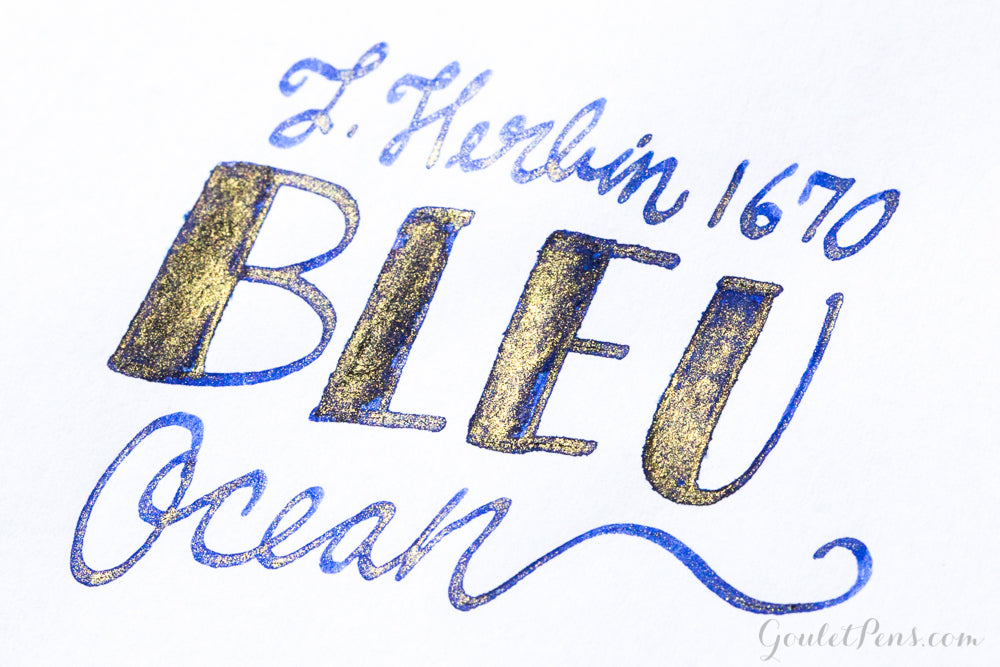 J. Herbin 1670
BLEU
Ocean
GouletPens.com